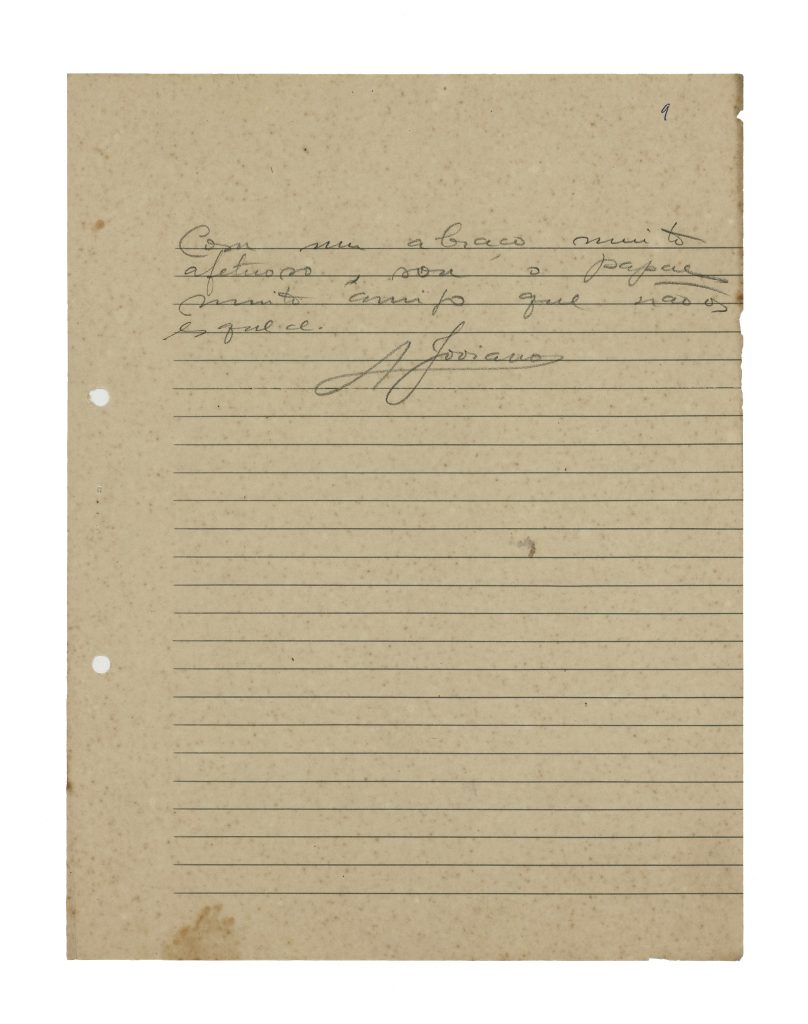 9
Com um abraço muito
afetuoso, sou o papae
muito amigo que não os
esquece.
A Joviano